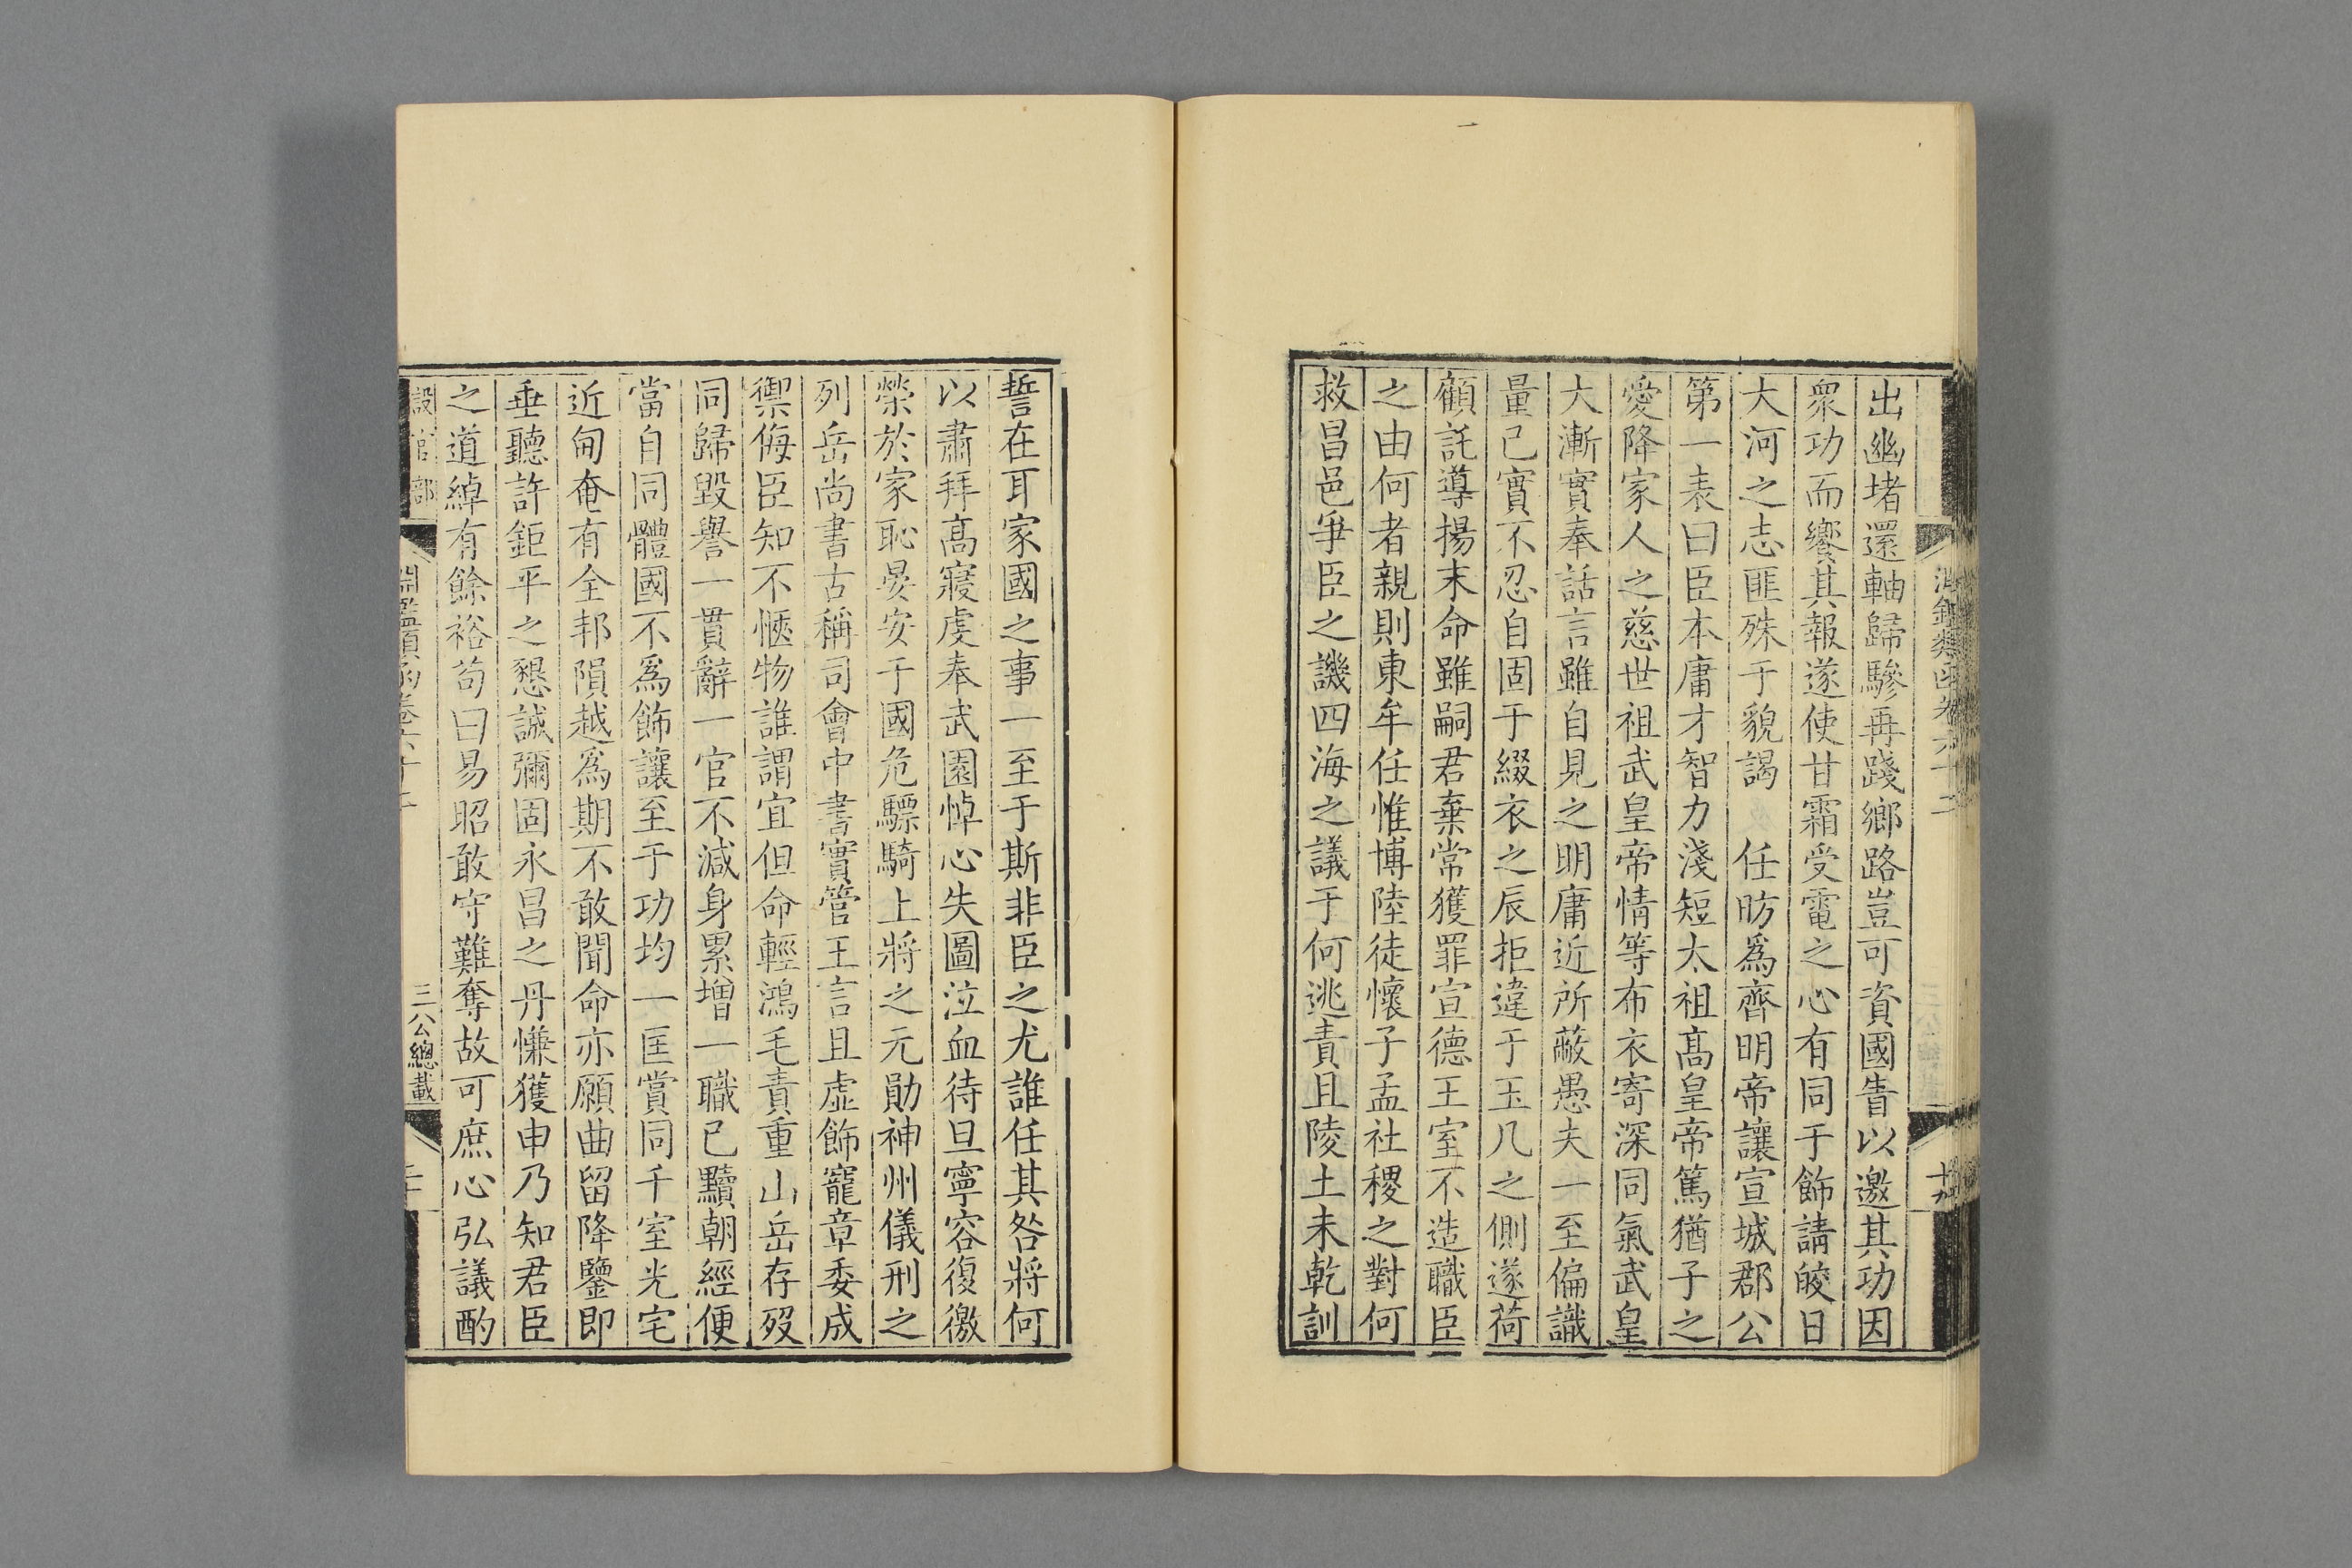 出幽堵還軸歸驂再踐鄉路豈可資國眚以邀其功因
衆功而饗其報遂使甘霜受電之心有同于飾請皎日
大河之志匪殊于貌謁　任昉爲齊明帝讓宣城郡公
第一表曰臣本庸才智力淺短太祖高皇帝篤猶子之
愛降家人之慈世祖武皇帝情等布衣寄深同氣武皇
大漸實奉話言雖自見之明庸近所蔽愚夫一至偏識
量已實不忍自固于綴衣之辰拒違于玉几之側遂荷
顧託導揚末命雖嗣君棄常獲罪宣德王室不造職臣
之由何者親則東牟任惟博陸徒懷子孟社稷之對何
救昌邑爭臣之譏四海之議于何逃責且陵土未乾訓
誓在耳家國之事一至于斯非臣之尤誰任其咎將何
以肅拜高寢虔奉武園悼心失圖泣血待旦寧容復徼
榮於家恥晏安于國危驃騎上將之元勛神州儀刑之
列岳尚書古稱司會中書實管王言且虛飾寵章委成
禦侮臣知不愜物誰謂宜但命輕鴻毛責重山岳存歿
同歸毀譽一貫辭一官不減身累增一職已黷朝經便
當自同體國不爲飾讓至于功均一匡賞同千室光宅
近甸奄有全邦隕越爲期不敢聞命亦願曲留降鑒即
垂聽許鉅平之懇誠彌固永昌之丹慊獲申乃知君臣
之道綽有餘裕苟曰易昭敢守難奪故可庶心弘議酌
設官部
三公總載